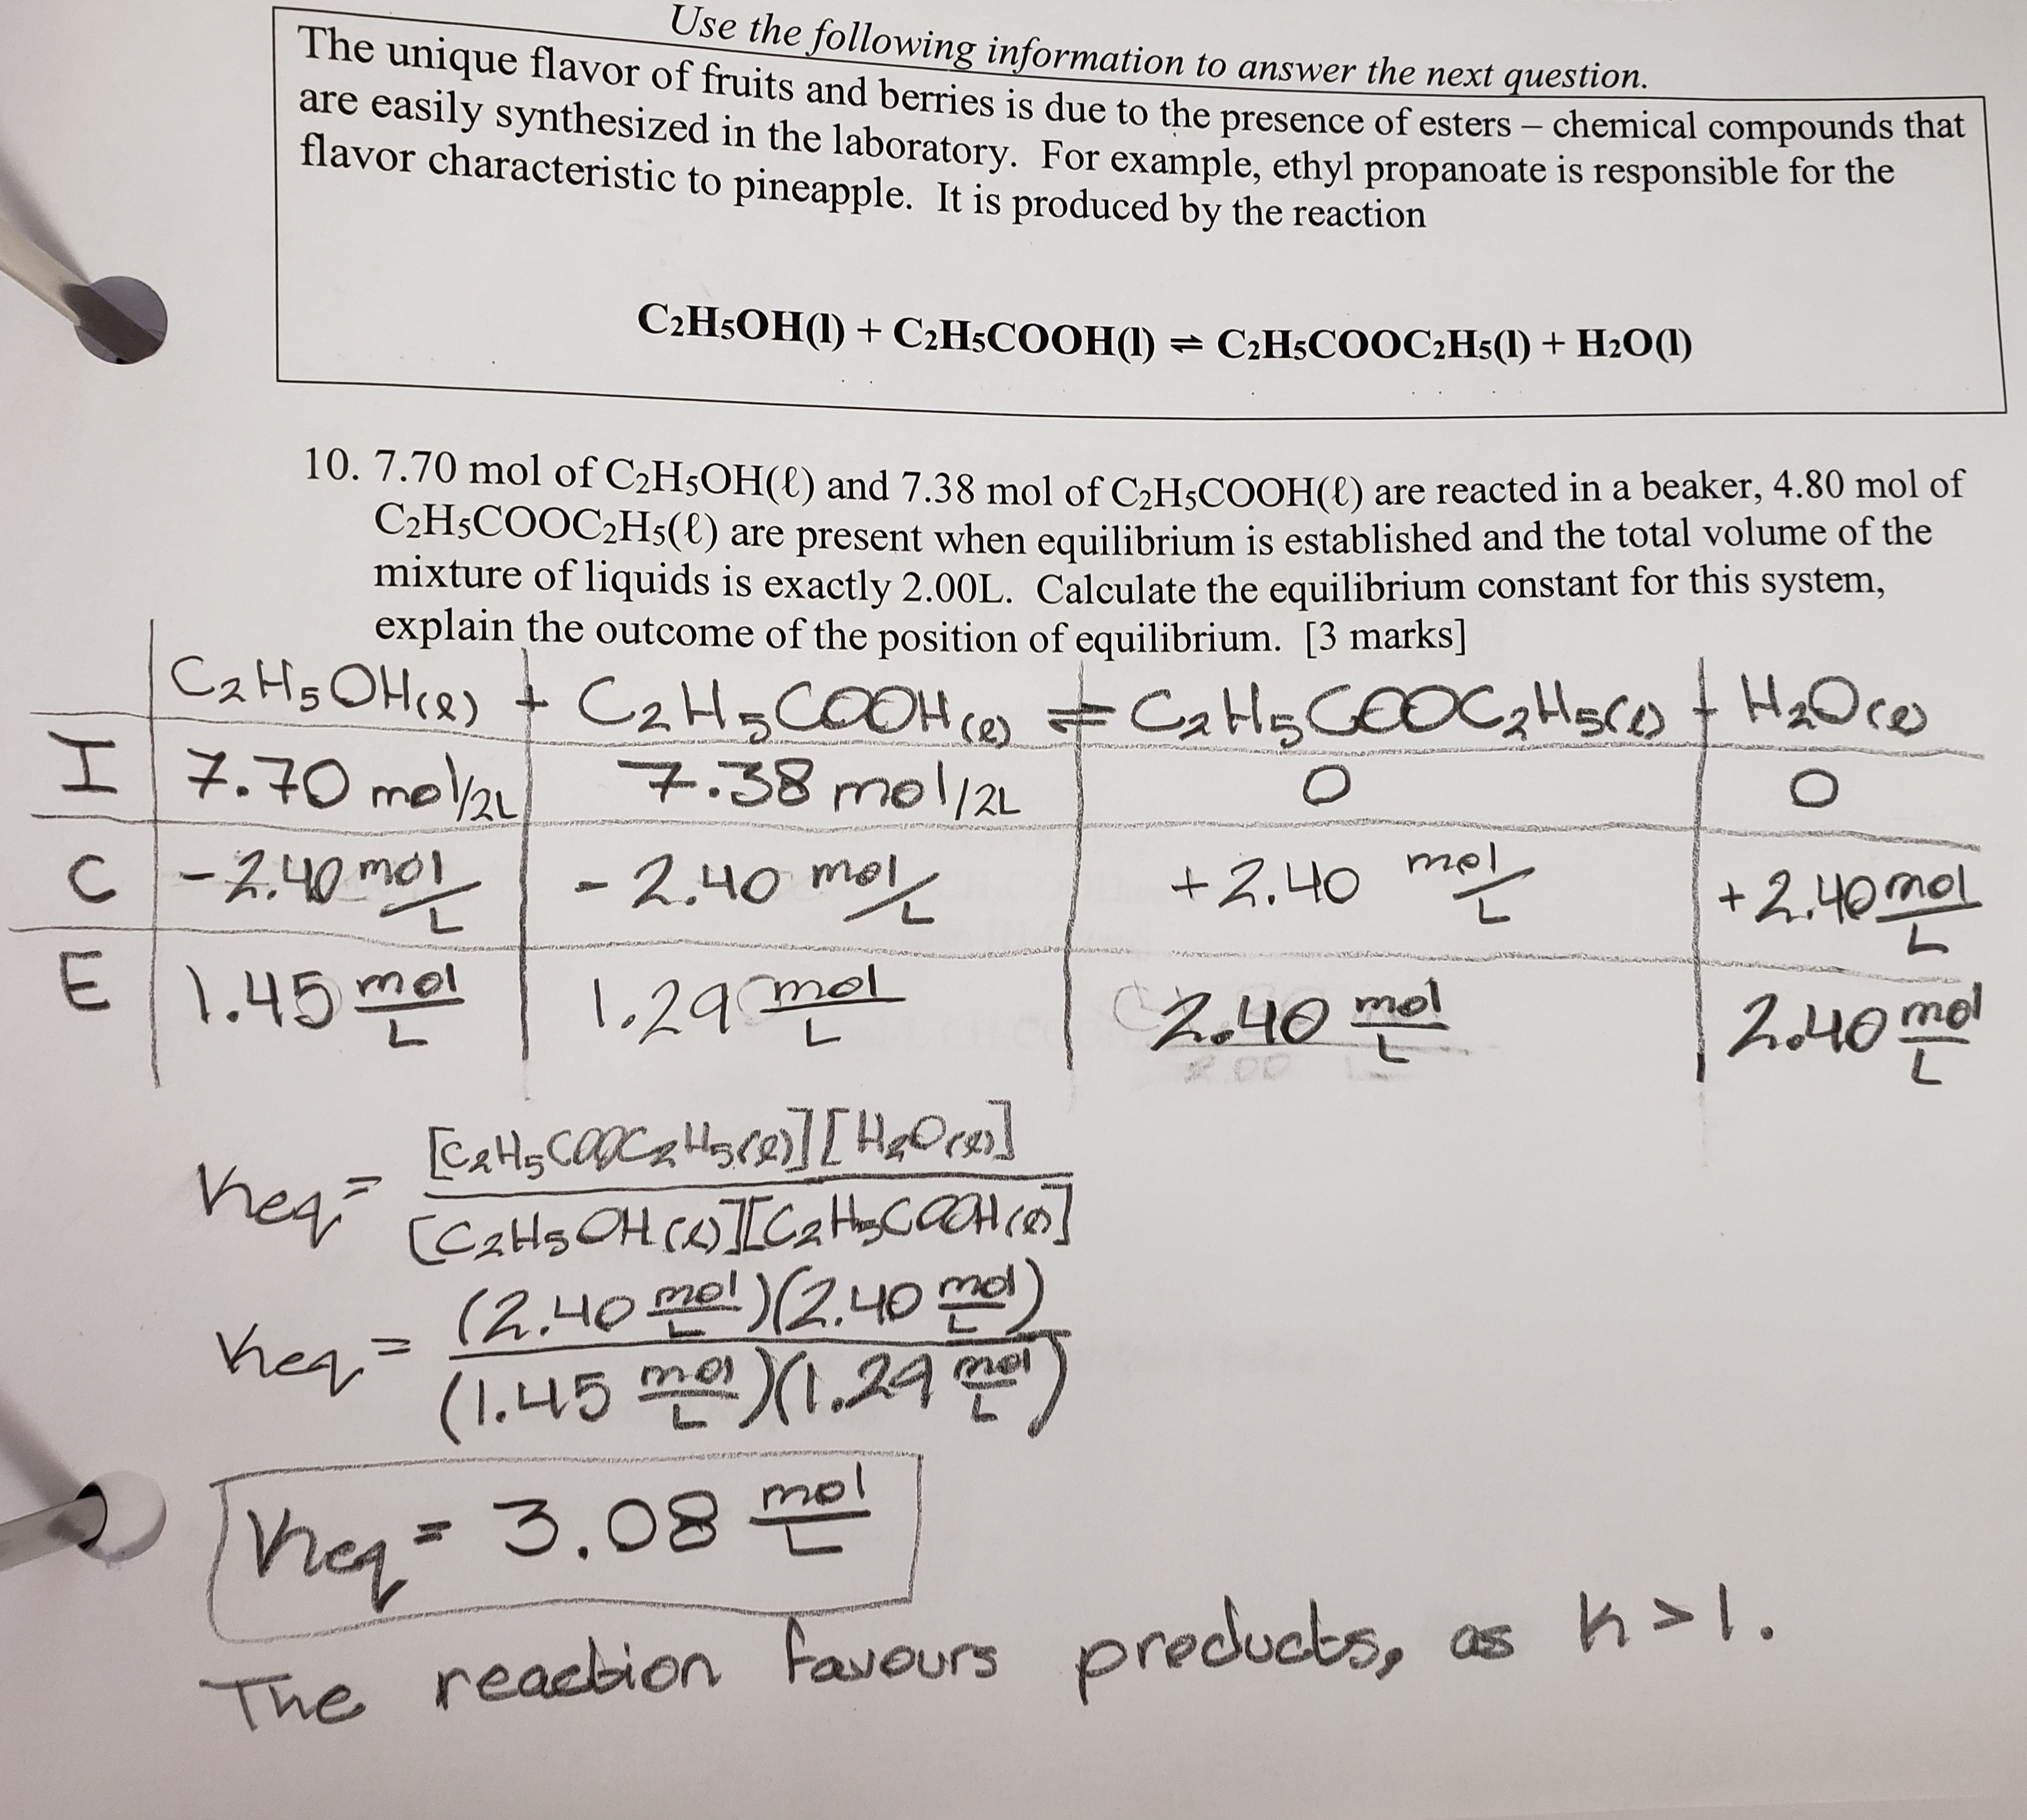 Use the following information to answer the next question.
The unique flavor of fruits and berries is due to the presence of esters – chemical compounds that
are easily synthesized in the laboratory. For example, ethyl propanoate is responsible for the
flavor characteristic to pineapple. It is produced by the reaction
C₂H₅OH(l) + C₂H₅COOH(l) ⇌ C₂H₅COOC₂H₅(l) + H₂O(l)
10. 7.70 mol of C₂H₅OH(ℓ) and 7.38 mol of C₂H₅COOH(ℓ) are reacted in a beaker, 4.80 mol of
C₂H₅COOC₂H₅(ℓ) are present when equilibrium is established and the total volume of the
mixture of liquids is exactly 2.00L. Calculate the equilibrium constant for this system,
explain the outcome of the position of equilibrium. [3 marks]
C₂H₅OH(ℓ) + C₂H₅COOH(ℓ) ⇌ C₂H₅COOC₂H₅(ℓ) + H₂O(ℓ)
I 7.70 mol/2L 7.38 mol/2L 0 0
C -2.40 mol/L -2.40 mol/L +2.40 mol/L +2.40 mol/L
E 1.45 mol/L 1.29 mol/L 2.40 mol/L 2.40 mol/L
Keq = [C₂H₅COOC₂H₅(ℓ)][H₂O(ℓ)]
[C₂H₅OH(ℓ)][C₂H₅COOH(ℓ)]
Keq = (2.40 mol/L)(2.40 mol/L)
(1.45 mol/L)(1.29 mol/L)
Keq = 3.08 mol/L
The reaction favours products, as K > 1.